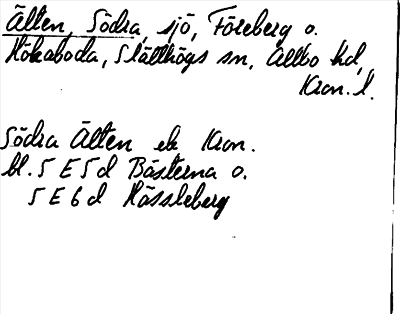 Älten, Södra, sjö, Föreberg o.
Hökaboda, Slätthögs sn, Allbo hd,
Kron. l.
Södra Älten ek Kron.
bl. 5 E 5 d Bästerna o.
5 E 6 d Hässleberg